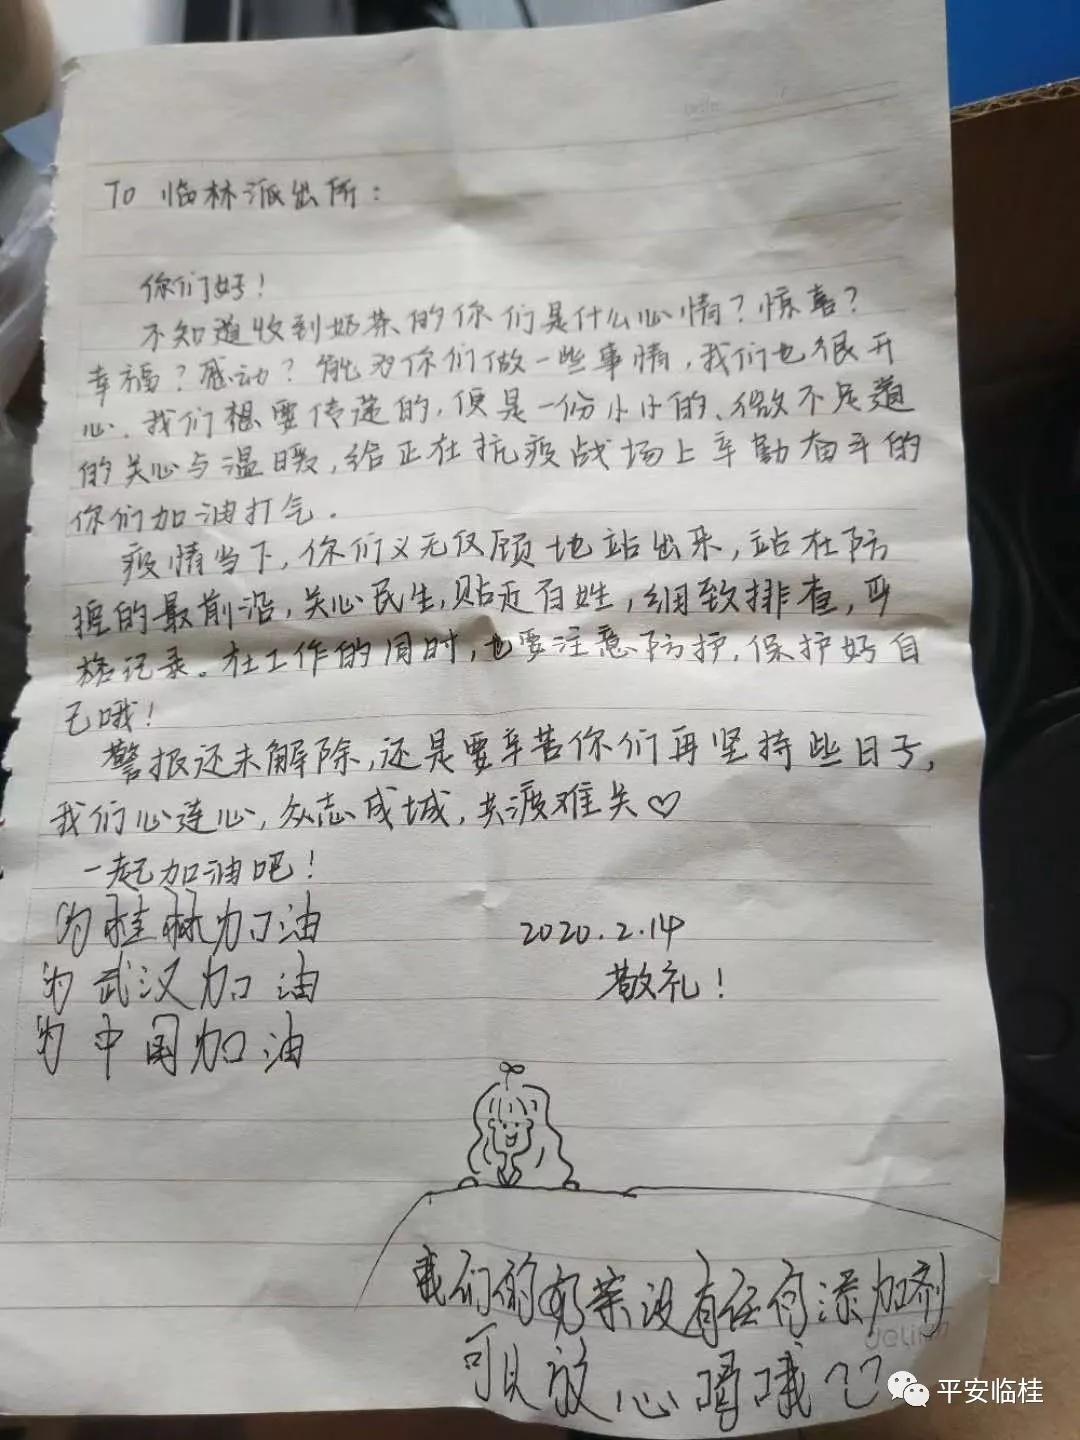 To 临林派出所：
你们好！
不知道收到奶茶的你们是什么心情？惊喜？
幸福？感动？能为你们做一些事情，我们也很开
心、我们想要传递的，便是一份小小的、微不足道
的关心与温暖，给正在抗疫战场上辛勤奋斗的
你们加油打气.
疫情当下，你们义无反顾地站出来，站在防
控的最前沿，关心民生，贴近百姓，细致排查，严
格记录。在工作的同时，也要注意防护，保护好自
己哦！
警报还未解除，还是要辛苦你们再坚持些日子，
我们心连心，众志成城，共渡难关♡
一起加油吧！
为桂林加油
2020.2.14
为武汉加油
敬礼！
为中国加油
我们的奶茶没有任何添加剂
可以放心喝哦
deli
平安临桂